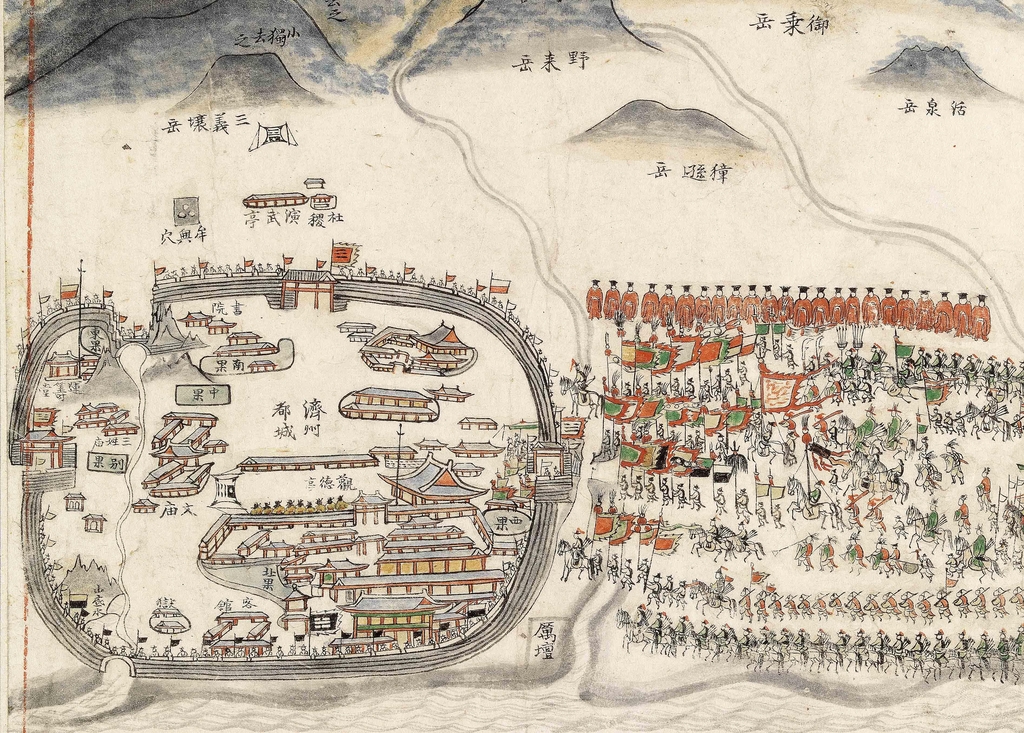 御乗岳
小獨去之
野来岳
活泉岳
三義壤岳
社稷
演武亭
牟興穴
三
書院
南果
中果
濟州
都城
三姓庙
別果
觀德亭
文庙
西果
北果
客館
獄
厲壇